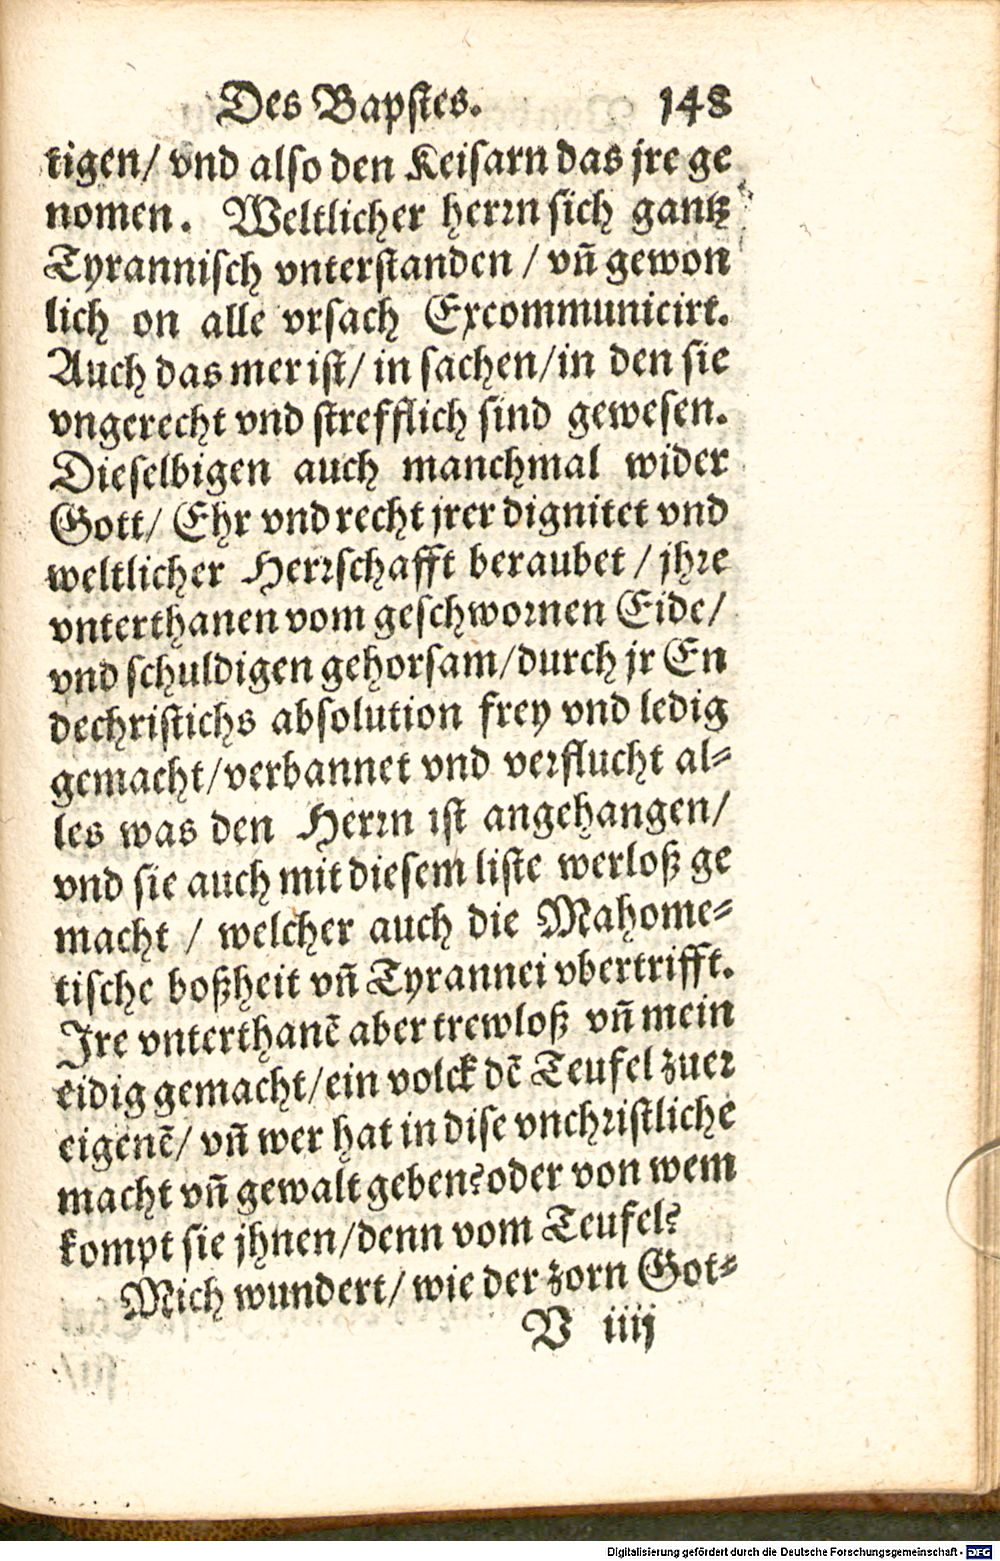 Des Bapstes. 148
tigen/ vnd also den Keisarn das jre ge
nomen. Weltlicher herrn sich gantz
Tyrannisch vnterstanden / vñ gewon
lich on alle vrsach Excommunicirt.
Auch das mer ist/ in sachen/in den sie
vngerecht vnd strefflich sind gewesen.
Dieselbigen auch manchmal wider
Gott/ Ehr vnd recht jrer dignitet vnd
weltlicher Herrschafft beraubet / jhre
vnterthanen vom geschwornen Eide/
vnd schuldigen gehorsam/durch jr En
dechristichs absolution frey vnd ledig
gemacht/verbannet vnd verflucht al⸗
les was den Herrn ist angehangen/
vnd sie auch mit diesem liste werloß ge
macht / welcher auch die Mahome⸗
tische boßheit vñ Tyrannei vbertrifft.
Jre vnterthanẽ aber trewloß vñ mein
eidig gemacht/ein volck dẽ Teufel zuer
eigenẽ/ vñ wer hat in dise vnchristliche
macht vñ gewalt geben?oder von wem
kompt sie jhnen/denn vom Teufel?
Mich wundert/ wie der zorn Got⸗
V iiij
Digitalisierung gefördert durch die Deutsche Forschungsgemeinschaft - DFG